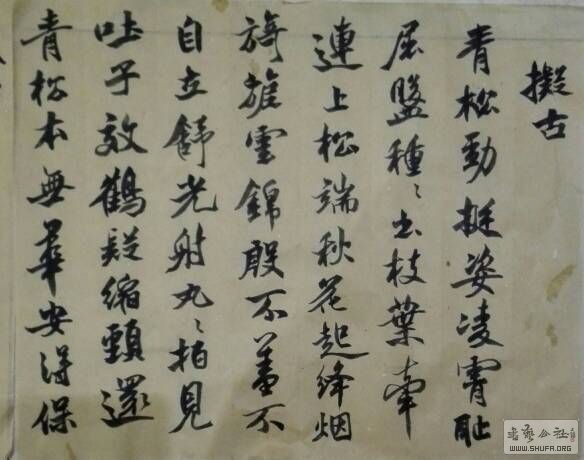 擬古
青松勁挺姿凌霄耻
屈盤種〻出枝葉牽
連上松端秋花起絳烟
旖旎雲錦殷不羞不
自立舒光射丸〻柏見
吐子效鶴疑縮頸還
青松本無華安得保
书艺公社
WWW.SHUFA.ORG